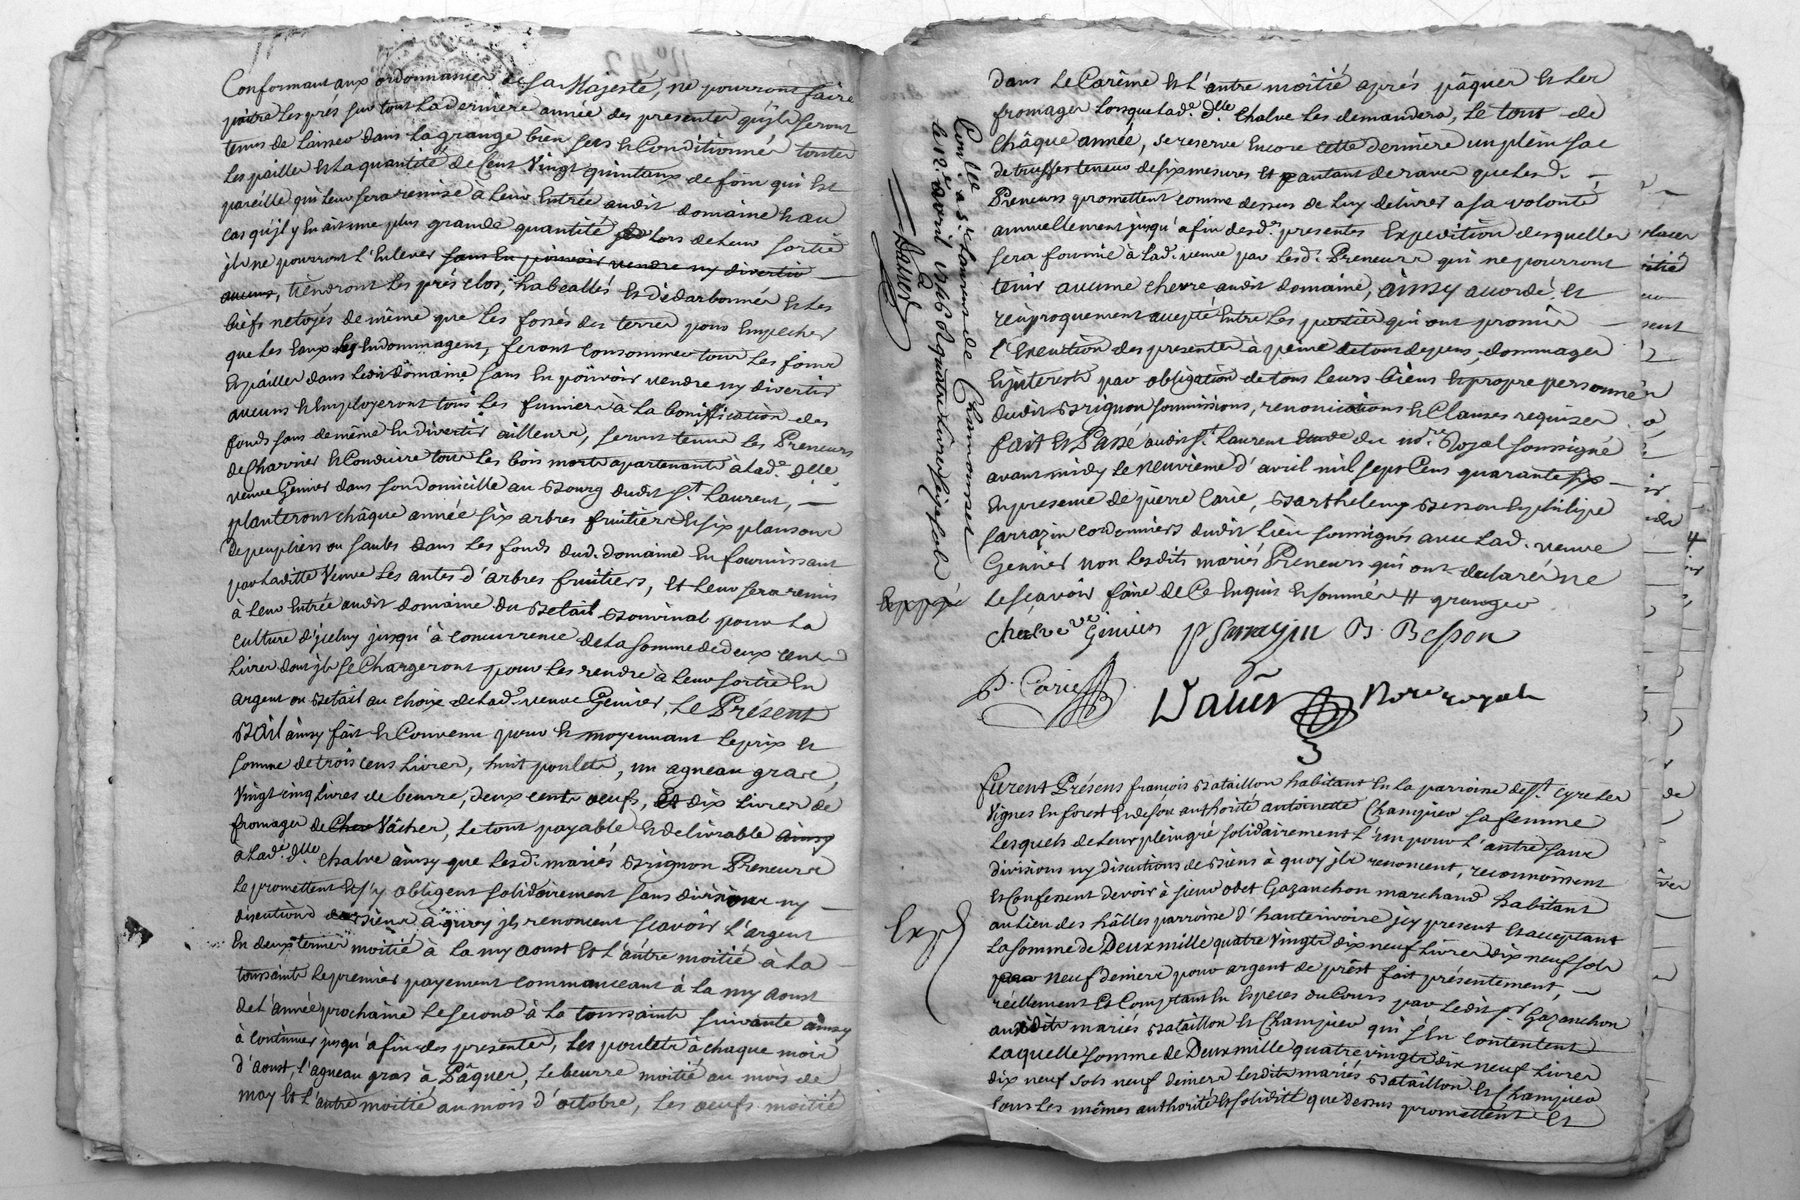 Conformant aux ordonnances de sa Majesté, ne pourront faire
paitre les prés sur tout la derniere année des presentes qu'jls seront
tenus de laisser dans la grange bien secs et Conditionnés toutes
les pailles et la quantité de Cent vingt quintaux de foin qui est
pareille qui leur sera remise a leur Entrée audit domaine et au
cas qu'jl y En ait une plus grande quantité lors de leur sortie
jls ne pourront l'Enlever sans En pouvoir vendre ny divertir
aucuns, tiendront les prés clos, et dédarbonnés et les
biefs netojés de même que les fossés des terres pour Empecher
que les Eaux les Endommagent, feront consommer tous les foins
et pailles dans ledit domaine sans En pouvoir vendre ny divertir
aucuns et Employeront tous les fumiers à la bonification des
fonds sans de même En divertir ailleurs, seront tenus les Preneurs
de Charrier et Conduire tous les bois morts apartenants à lad.e d.lle
veuve Genier dans son domicille au Bourg dudit S.t Laurent,
planteront châque année six arbres fruitiers et six plansons
de peupliers ou saules dans les fonds dud. domaine En fournissant
par laditte veuve les antes d'arbres fruitiers, et leur sera remis
à leur Entrée audit domaine du Betail Bouvinal pour la
culture d'jceluy jusqu'à concurrence de la somme de deux cents
livres dont jls se Chargeront pour les rendre à leur sortie En
argent ou Betail au choix de lad.e veuve Genier, Le Présent
Bail ainsy fait et Convenu pour et moyennant le prix et
somme de trois cens livres, huit poulets, un agneau gras,
vingt cinq livres de beurre, deux cents oeufs, et dix livres de
fromages de Vâches, le tout payable et delivrable ainsy
a lad.e d.lle Chalve ainsy que lesd. mariés Brignon Preneurs
le promettent et s'y obligent solidairement sans division ny
discution de Biens à quoy jls renoncent scavoir l'argent
En deux termes moitié à la my aoust et l'autre moitié à la
toussaints le premier payement commanceant à la my aoust
de l'année prochaine le second à la toussaints suivante ainsy
à continuer jusqu'a fin des presentes, les poulets à chaque mois
d'aoust, l'agneau gras à Pâques, le beurre moitié au mois de
may et l'autre moitié au mois d'octobre, les oeufs moitié
dans le Carême et l'autre moitié aprés pâques et les
fromages lorsque lad.e d.lle Chalve les demandera, le tout de
châque année, se reserve Encore cette derniere un plein sac
de truffes teneur de six mesures et autant de raves que lesd.
Preneurs promettent comme dessus de luy delivrer a sa volonté
annuellement jusqu'a fin desd.es presentes Expedition desquelles
sera fournie à lad. veuve par lesd. Preneurs qui ne pourront
tenir aucune chevre audit domaine, ainsy accordé et
reciproquement accepté Entre les parties qui ont promis
l'Execution des presentes à peine de tous depens, dommages
et jnterests par obligation de tous leurs biens et propre personne
dudit Brignon soumissions, renonciations et Clauses requises
fait et Passé audit S.t Laurent Etude du no.re Royal soussigné
avant midy le neuvieme d'avril mil sept Cens quarante six
En presence de pierre Carie, Barthelemy Besson et philipe
Sarrazin cordonniers dudit lieu soussignés avec lad. veuve
Genier non lesdits mariés Preneurs qui ont declaré ne
le scavoir faire de Ce Enquis et sommés
chalve v.ve Genier P Sarrazin B. Besson
P. Carie
Not.re royal
Con.lé a S.t Laurens de Chamousset
le 12.e avril 1746
Expédié
furent Présens françois Bataillon habitant En la parroisse de S.t Cyr les
vignes En forest et de son authorité antoinette Chamjieu sa femme
lesquels de leur plein gré solidairement l'un pour l'autre sans
divisions ny discutions de Biens à quoy jls renoncent, reconnoissent
et Confessent devoir à sieur odet Gazanchon marchand habitant
au lieu des hâlles parroisse d'hauterivoire jcy present et acceptant
la somme de Deux mille quatre vingts dix neuf livres dix neuf sols
neuf deniers pour argent de prêst fait présentement,
réellement et Comptant En Especes du Cours par ledit s.r Gazanchon
auxdits mariés Bataillon et Chamjieu qui s'En contentent
Laquelle somme de Deux mille quatre vingts dix neuf livres
dix neuf sols neuf deniers lesdits mariés Bataillon et Chamjieu
sous les mêmes authorité et solidité que dessus promettent et
Exp.é